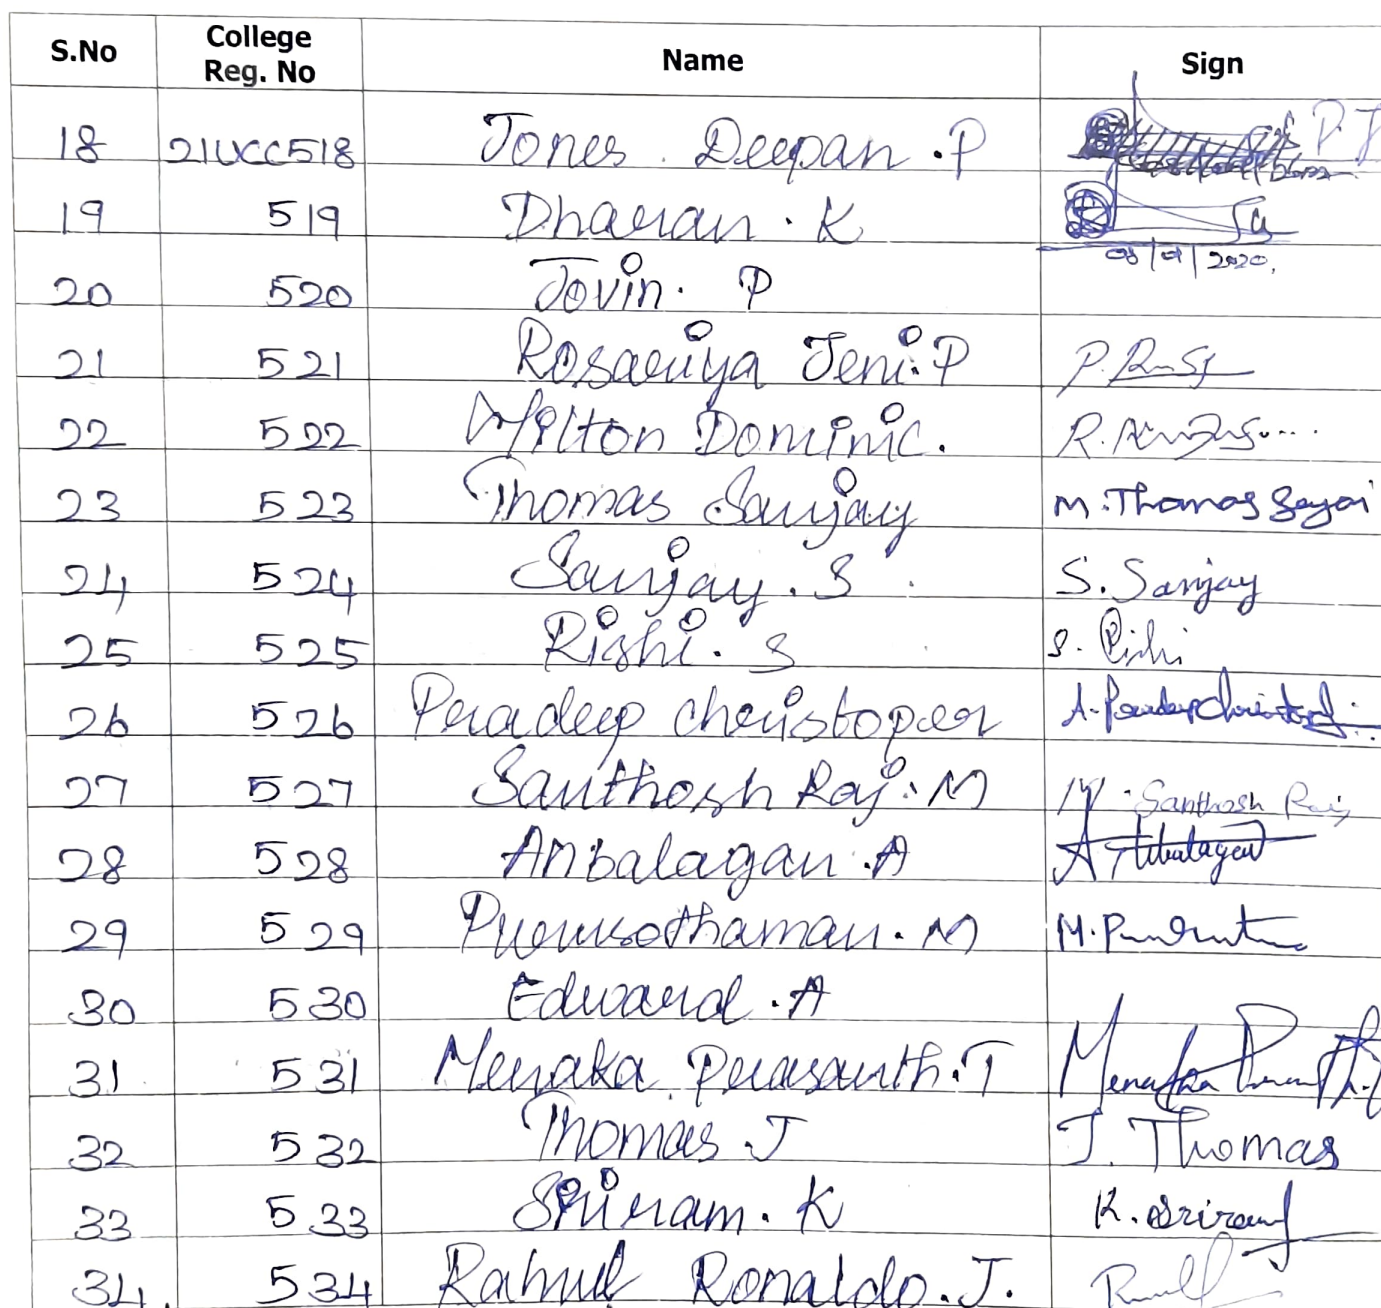 S.No College Reg. No Name Sign
18 21UCC518 Jones Deepan . P P. J
19 519 Dharan . K
08/01/2020.
20 520 Jovin . P
21 521 Rosariya Jeni . P
22 522 Milton Dominic.
23 523 Thomas Sanjay M. Thomas
24 524 Sanjay . S S. Sanjay
25 525 Rishi . S S. Rishi
26 526 Pradeep christoper
27 527 Santhosh Raj . M M. Santhosh Raj
28 528 Anbalagan . A
29 529 Purusothaman . M
30 530 Edward . A
31 531 Menaka Prasanth . T
32 532 Thomas . J J. Thomas
33 533 Sriram . K K. Sriram
34. 534 Rahul Ronaldo . J.